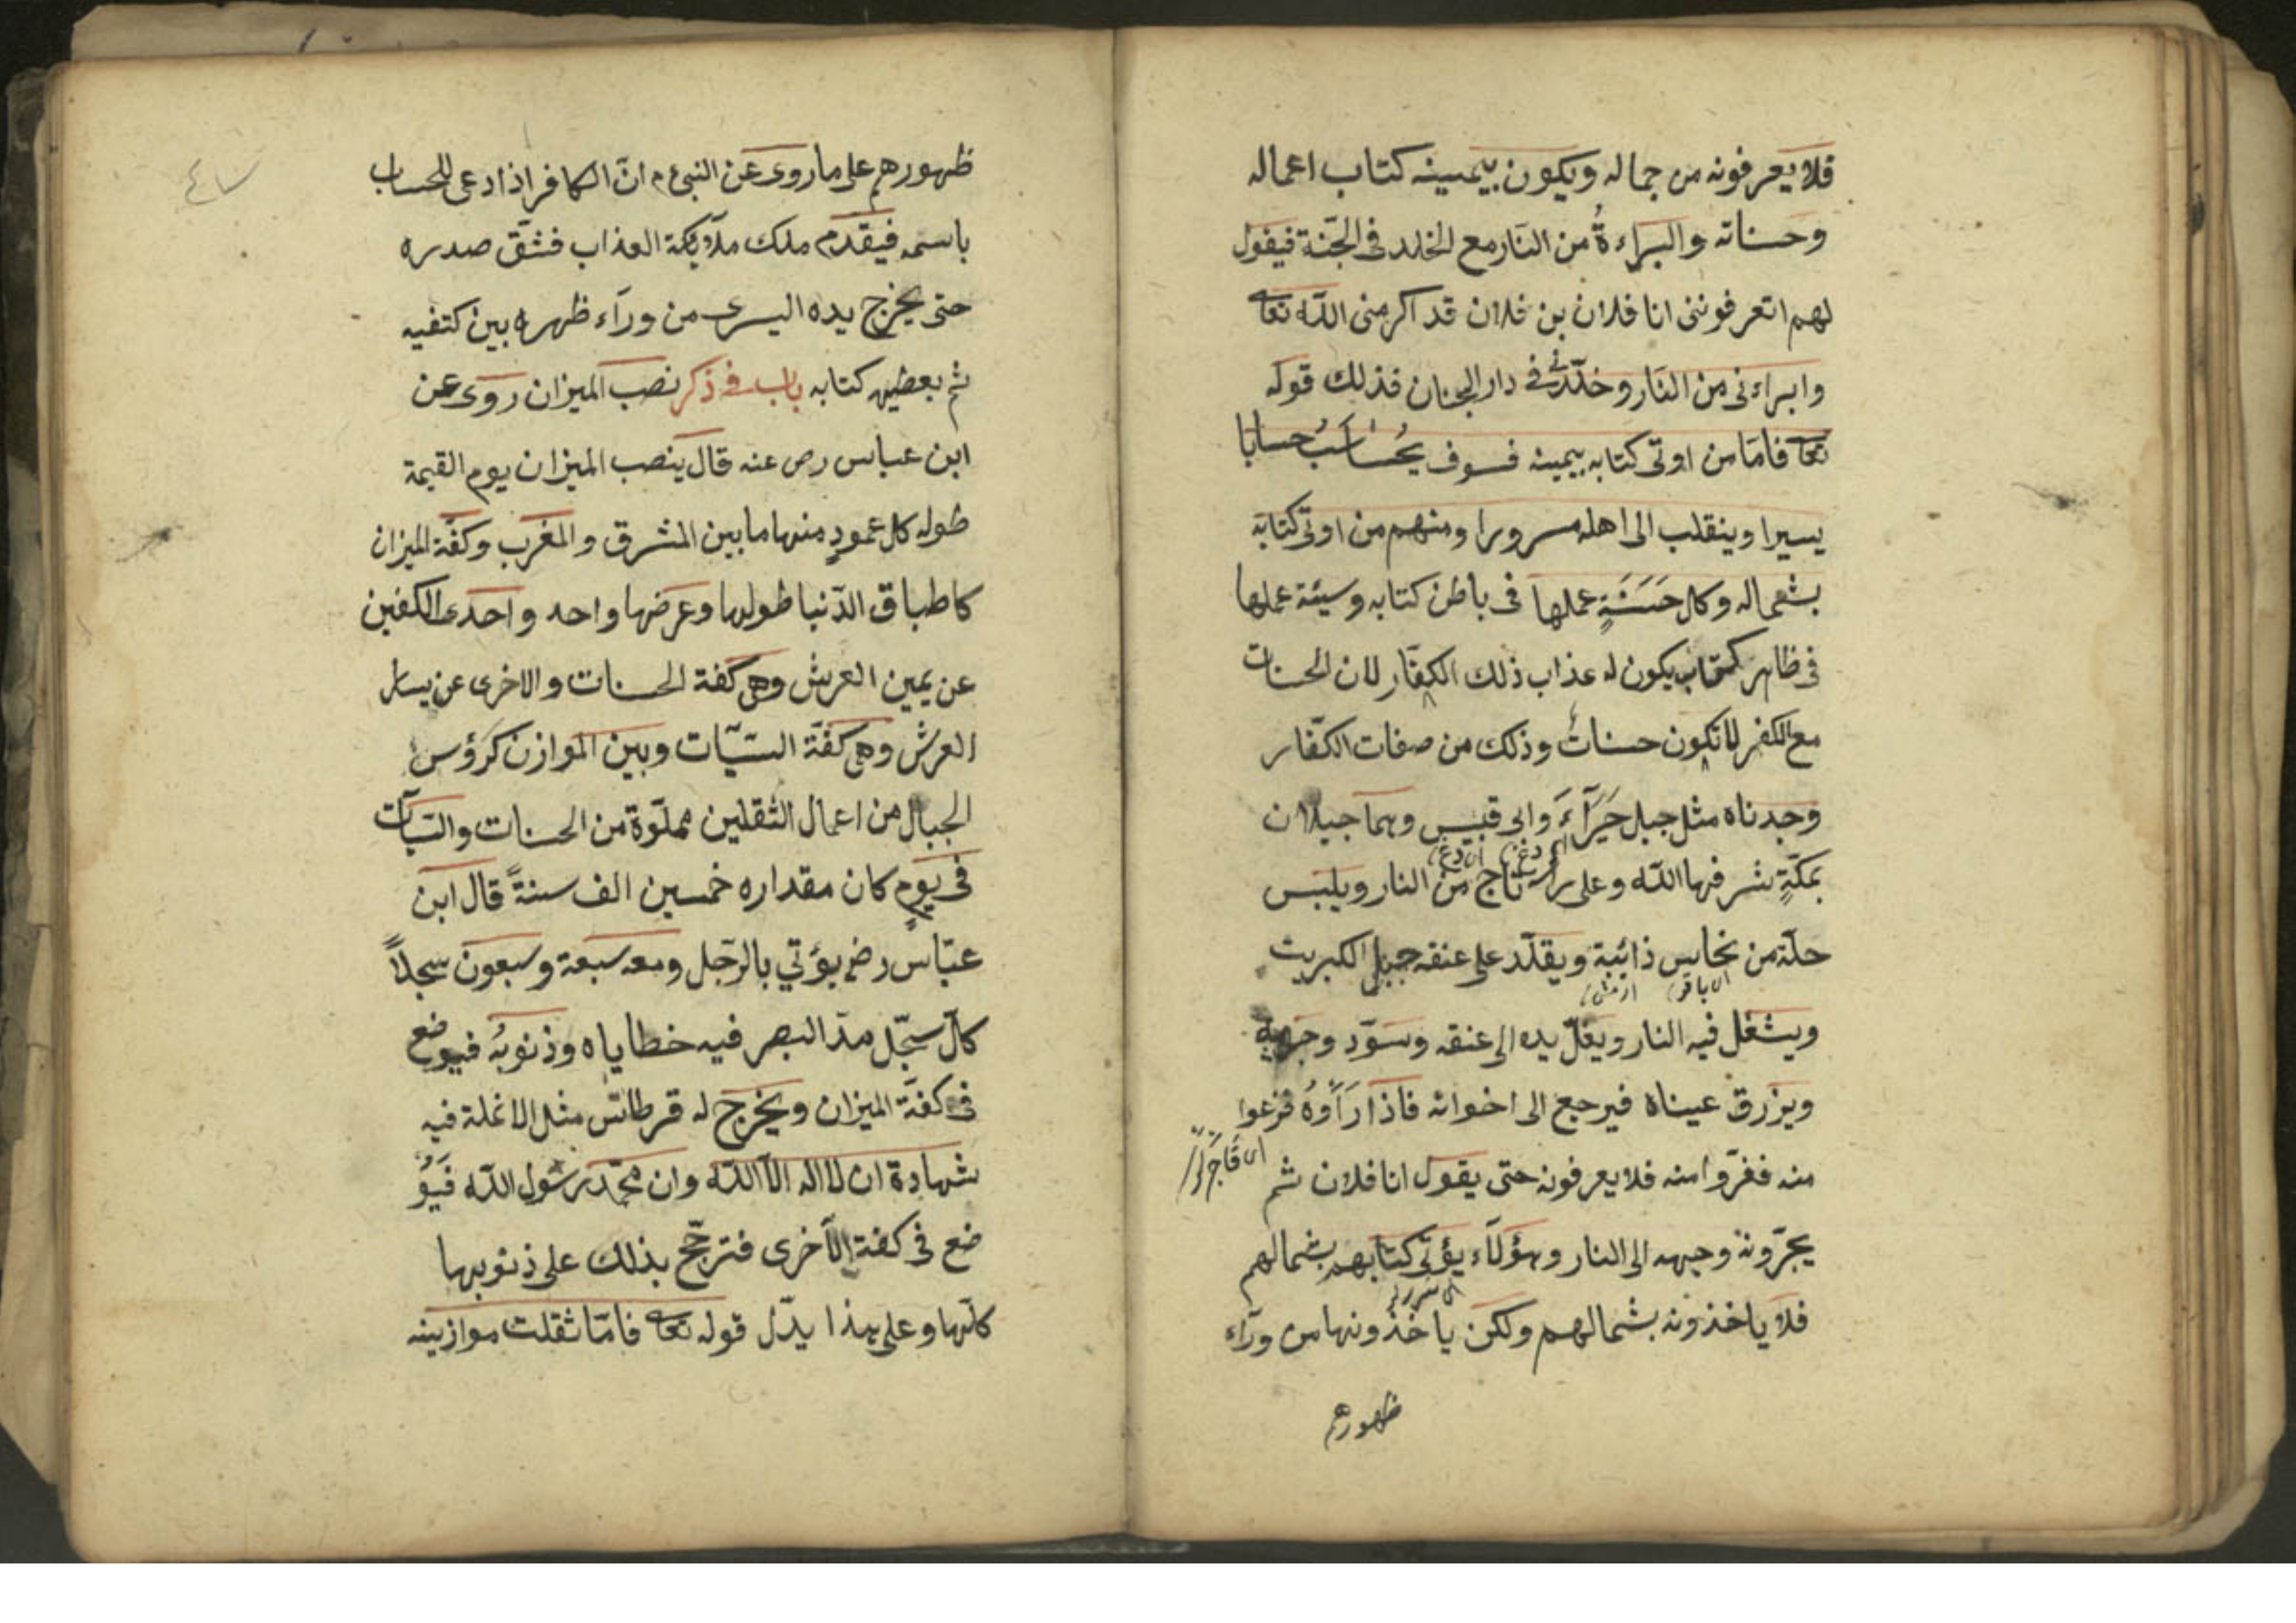 فلا يعرفونه من جماله ويكون بيمينه كتاب اعماله
وحسناته والبراءةُ من النار مع الخلد فى الجنّة فيقول
لهم اتعرفوننى انا فلان بن فلان قد اكرمنى الله تعا
وابراءنى من النار وخلّدنى فى دار الجنان فذلك قوله
تعا فامّا من اوتى كتابه بيمينه فسوف يُحَاسَبُ حسابا
يسيرا وينقلب الى اهله مسرورا ومنهم من اوتى كتابه
بشماله وكل حَسَنَةٍ عملها فى باطن كتابه وسيئة عملها
فى ظاهر كتاب يكون له عذاب ذلك الكفّار لان الحسنات
مع الكفر لا تكون حسنات وذلك من صفات الكفّار
وجدناه مثل جبل حَرَآءَ وابى قبيس وهما جبلان
بمكّةٍ شرفها الله وعلى راسه تاج من النار ويلبس
حلّة من نحاس ذائبة ويقلّد على عنقه جبل الكبريت
ويشغل فيه النار ويغلّ يده الى عنقه وسوّد وجهه
ويزرق عيناه فيرجع الى اخوانه فاذا رَاَوهُ فزعوا
منه ففرّوا منه فلا يعرفونه حتى يقول انا فلان ثم
يجرّونه وجهه الى النار وهؤلاء يؤتى كتابهم بشمالهم
فلا ياخذونه بشمالهم ولكن ياخذونها من ورآء
ظهورهم
ظهورهم على ما روى عن النبى ع م انّ الكافر اذا دعى للحساب
باسمه فيقدم ملك ملائكة العذاب فشقّ صدره
حتى يخرج يده اليسرى من ورآء ظهره بين كتفيه
ثم يعطيه كتابه باب فى ذكر نصب الميزان روى عن
ابن عباس رض عنه قال ينصب الميزان يوم القيمة
طوله كل عمودٍ منها ما بين المشرق والمغرب وكفّة الميزان
كاطباق الدّنيا طولها وعرضها واحد واحدى الكفين
عن يمين العرش وهى كفة الحسنات والاخرى عن يسار
العرش وهى كفّة السيّآت وبين الموازن كرؤس
الجبال من اعمال الثقلين مملوّة من الحسنات والسّيآت
فى يومٍ كان مقداره خمسين الف سنةً قال ابن
عبّاس رض يؤتي بالرّجل ومعه سبعة وسبعون سجلّاً
كلّ سجّل مدّ البصر فيه خطاياه وذنوبُه فيوضع
فى كفّة الميزان ويخرج له قرطاس مثل الانملة فيه
شهادة ان لا اله الّا الله وان محمّد رسول الله فَيُوَ
ضع فى كفة الاخرى فترجّح بذلك على ذنوبها
كلّها وعلى هذا يدّل قوله تعا فامّا ثقلت موازينه